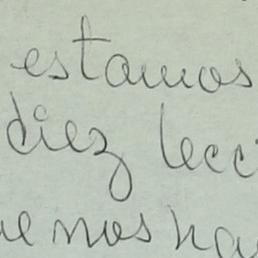 estamos
diez lecc
ue nos ha